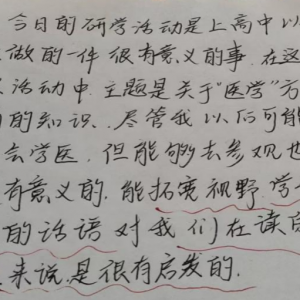 今日的研学活动是上高中以
做的一件很有意义的事.在这
活动中.主题是关于"医学"方
的知识.尽管我以后可能
会学医.但能够去参观也
有意义的.能拓宽视野.学
的话语对我们在读
来说.是很有启发的.